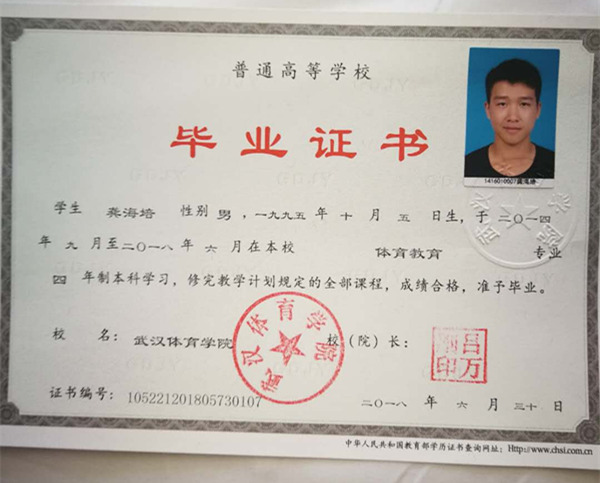 普通高等学校
毕业证书
1416010007龚海培
学生 龚海培 性别 男，一九九五年 十 月 五 日生，于 二〇一四
年 九 月至二〇一八年 六 月在本校 体育教育 专业
四 年制本科学习，修完教学计划规定的全部课程，成绩合格，准予毕业。
校 名：武汉体育学院 校（院）长：
武汉体育学院
吕万刚印
证书编号：105221201805730107 二〇一八 年 六 月 三十日
中华人民共和国教育部学历证书查询网址：Http://www.chsi.com.cn